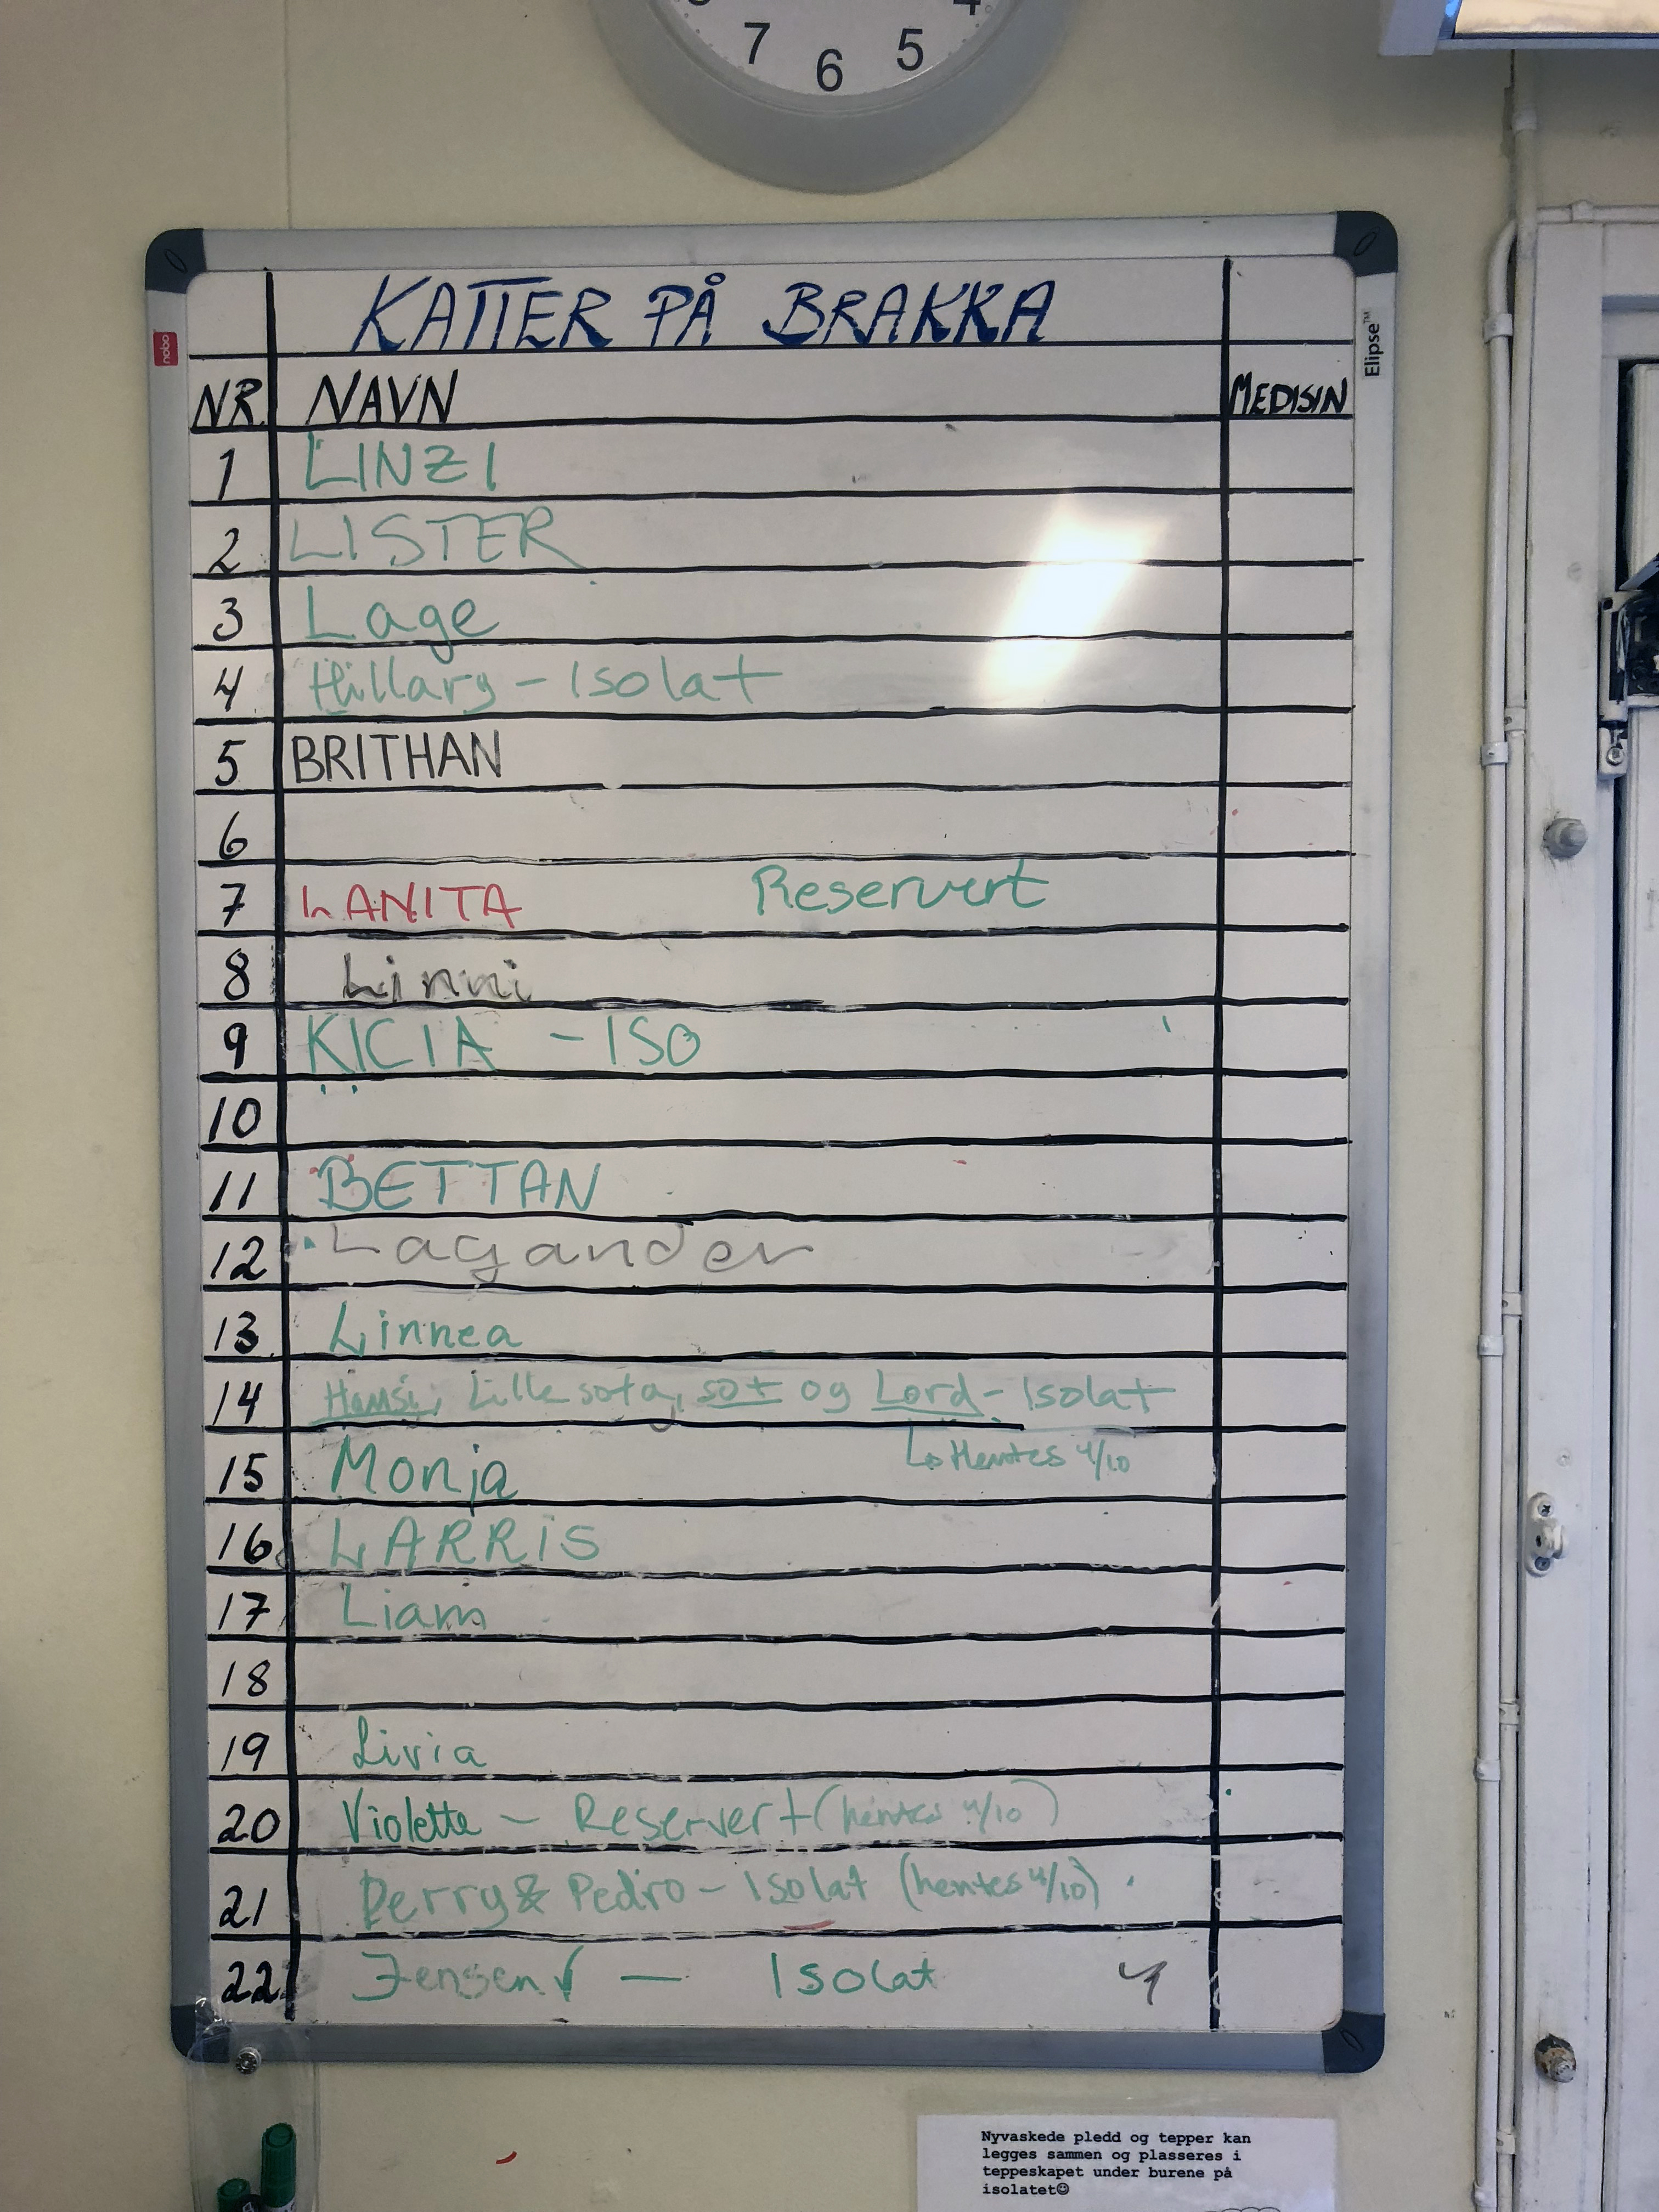 7 6 5
nobo
Elipse™
KATTER PÅ BRAKKA
NR. NAVN MEDISIN
1 LINZI
2 LISTER
3 Lage
4 Hillary - Isolat
5 BRITHAN
6
7 LANITA Reservert
8 Linni
9 KICIA - ISO
10
11 BETTAN
12 Lagander
13 Linnea
14 Hansi, Lille sota, sot og Lord - Isolat
↳ Hentes 4/10
15 Monja
16 LARRiS
17 Liam
18
19 Livia
20 Violette - Reservert (hentes 4/10)
21 Perry & Pedro - Isolat (hentes 4/10)
22 Jensen √ — Isolat
Nyvaskede pledd og tepper kan
legges sammen og plasseres i
teppeskapet under burene på
isolatet☺